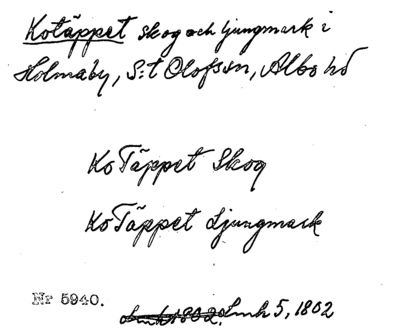 Kotäppet skog och ljungmark i
Holmaby, S:t Olofs sn, Albo hd
Ko Täppet Skog
Ko Täppet Ljungmark
Nr 5940.
Lmh 5, 1802